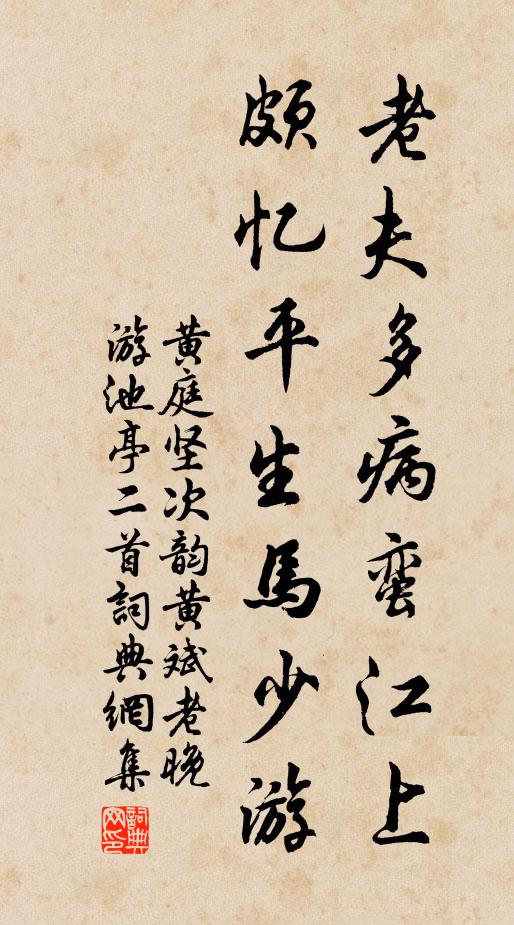 老夫多病蛮江上
颇忆平生馬少游
黄庭坚次韵黄斌老晚
游池亭二首詞典網集
詞典
网印